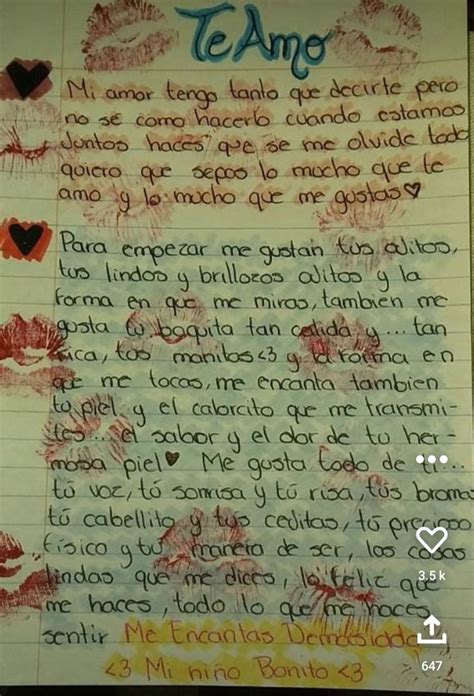 Te Amo
Mi amor tengo tanto que decirte pero
no se como hacerlo cuando estamos
Juntos haces que se me olvide todo
quiero que sepas lo mucho que te
amo y lo mucho que me gustas
Para empezar me gustan tús ojitos,
tus lindos y brillozos ojitos y la
forma en que me miras, tambien me
gusta tú boquita tan calida y ... tan
rica, tus manitas <3 y la forma en
que me tocas, me encanta tambien
tú piel y el calorcito que me transmi-
tes... el sabor y el olor de tu her-
mosa piel Me gusta todo de ti...
tú voz, tú sonrisa y tú risa, tús bromas
tú cabellito y tus ceditas, tú precioso
fisico y tú manera de ser, las cosas
lindas que me dices, lo feliz que
3.5 k
me haces, todo lo que me haces
sentir Me Encantas Demasiado
647
<3 Mi niño Bonito <3